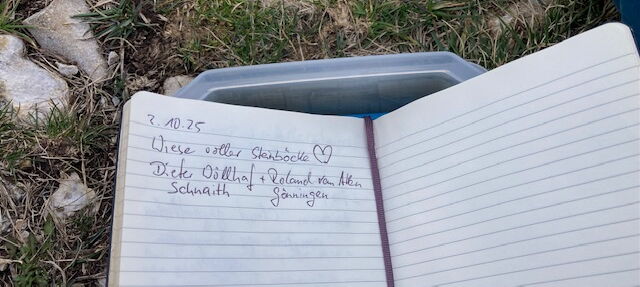 2.10.25
Wiese voller Steinböcke ♡
Dieter Völlhaf + Roland van Aken
Schnaith Gönningen